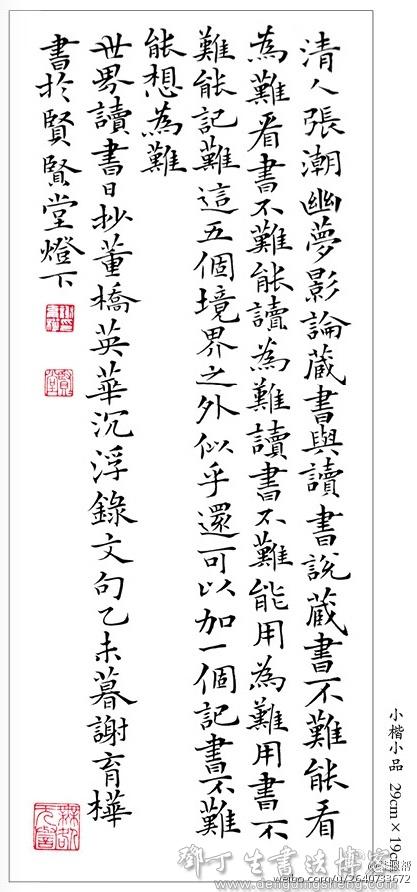 清人張潮幽夢影論藏書與讀書說藏書不難能看
為難看書不難能讀為難讀書不難能用為難用書不
難能記難這五個境界之外似乎還可以加一個記書不難
能想為難
世界讀書日抄董橋英華沉浮錄文句乙未暮謝育樺
書於賢賢堂燈下
小楷小品 29cm×19cm
鄧丁生書法博客
weibo.com/u/2640733672